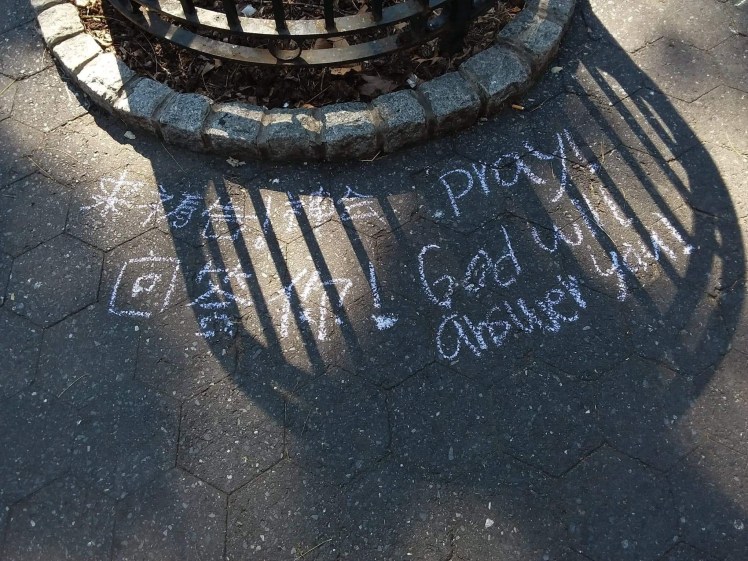 来祷告,神会
回答你!
pray!
God will
answer you